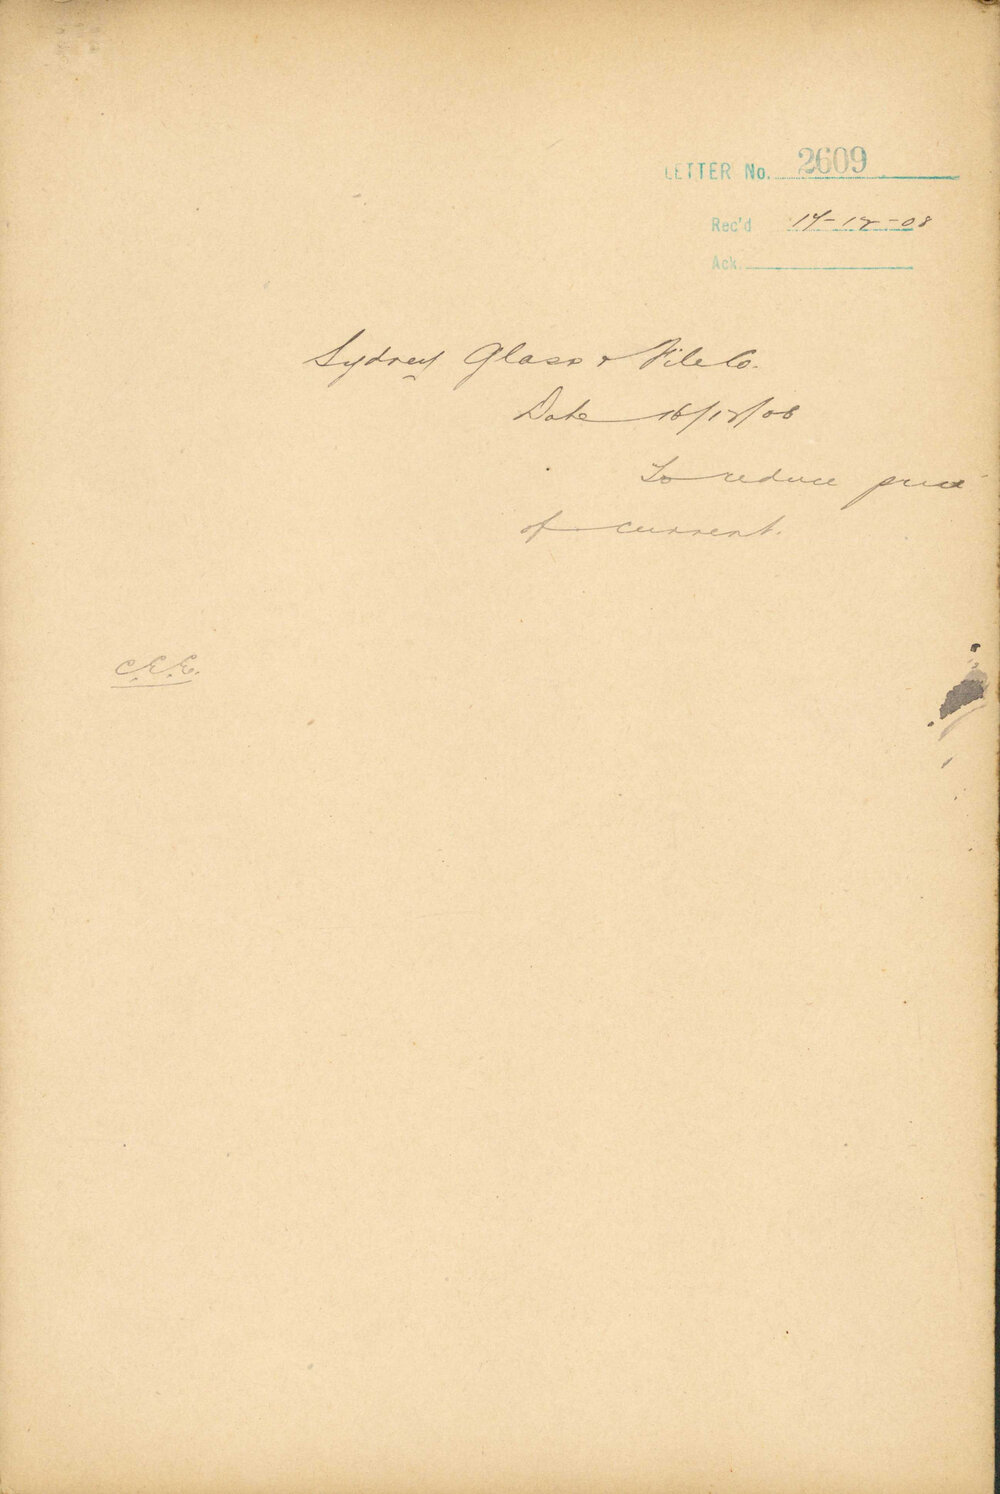 LETTER No. 2609
Rec'd 17-12-08
Ack.
Sydney Glass & Tile Co.
Date 16/12/08
To reduce price
of current.
C.E.E.